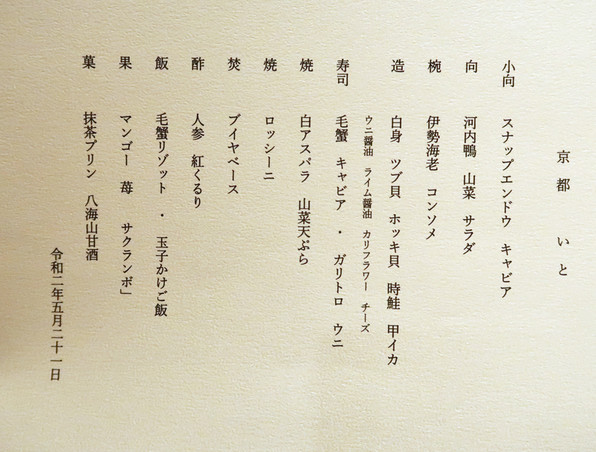 京都 いと
小向 スナップエンドウ キャビア
向 河内鴨 山菜 サラダ
椀 伊勢海老 コンソメ
造 白身 ツブ貝 ホッキ貝 時鮭 甲イカ
ウニ醤油 ライム醤油 カリフラワー チーズ
寿司 毛蟹 キャビア ・ ガリトロ ウニ
焼 白アスパラ 山菜天ぷら
焼 ロッシーニ
焚 ブイヤベース
酢 人参 紅くるり
飯 毛蟹リゾット ・ 玉子かけご飯
果 マンゴー 苺 サクランボ」
菓 抹茶プリン 八海山甘酒
令和二年五月二十一日